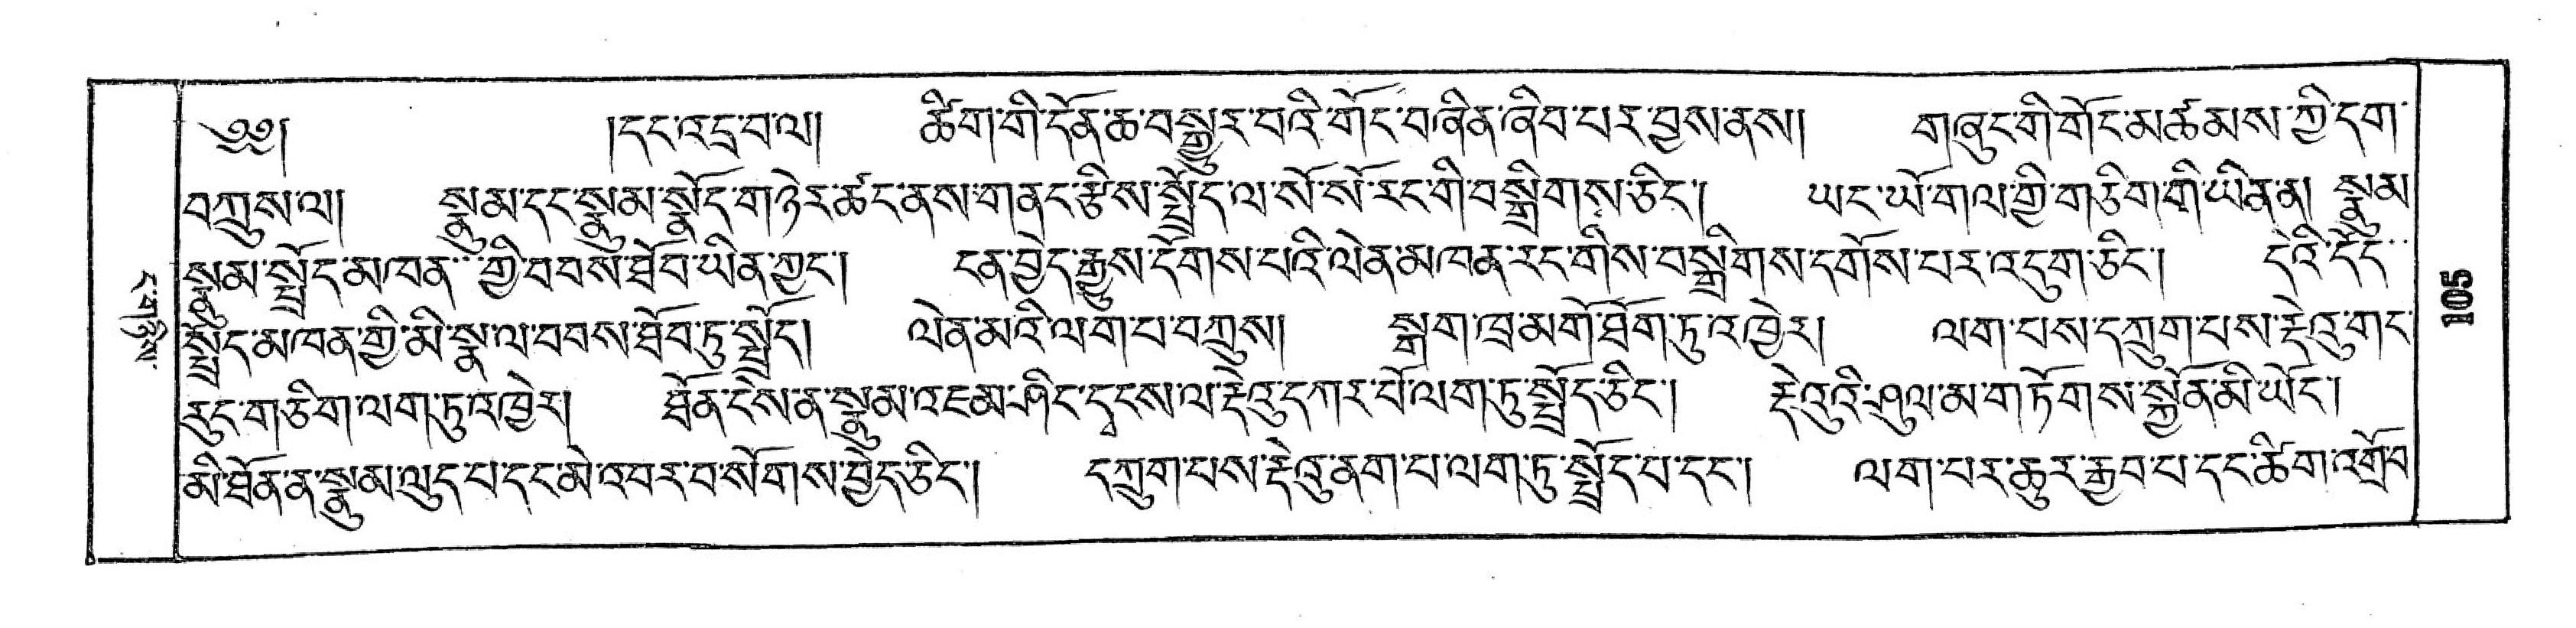 ༄༅།། །དང་འདྲ་བ་ལ། ཚིག་གི་དོན་ཆ་བསྒྱུར་བའི་གོང་བཞིན་ཞིབ་པར་བྱས་ནས། གཞུང་གི་གོང་མཚམས་ཀྱི་དག་
བཀྲུས་ལ། སྣུམ་དང་སྣུམ་སྣོད་གཉེར་ཚང་ནས་གནང་རྩིས་སྤྲོད་ལ་སོ་སོ་རང་གི་བསྒྲིགས་ཅིང་། ཡང་ཡོ་གལ་གྱི་གཅིག་གི་ཡིན་ན། སྣུམ་
སྣུམ་སྤྲོད་མཁན་གྱི་བབས་ཐོབ་ཡིན་ཀྱང་། ངན་བྱེད་རྒྱུས་དོགས་པའི་ལེན་མཁན་རང་གིས་བསྒྲིགས་དགོས་པར་འདུག་ཅིང་། དེའི་དོད་
སྤྲོད་མཁན་གྱི་མི་སྣ་ལ་བབས་ཐོབ་ཏུ་སྤྲོད། ལེན་མའི་ལག་པ་བཀྲུས། སྟག་ཁྲ་མགོ་ཐོག་ཏུ་འཁྱེར། ལག་པས་དཀྲུག་པས་རྡེའུ་གང་
རུང་གཅིག་ལག་ཏུ་འཁྱེར། ཐོན་ངེས་ན་སྣུམ་འཇམ་ཤིང་དྭངས་ལ་རྡེའུ་དཀར་པོ་ལག་ཏུ་སྤྲོད་ཅིང་། རྡེའུའི་ཤུལ་མ་གཏོགས་སྐྱོན་མི་ཡོང་།
མི་ཐོན་ན་སྣུམ་ལུད་པ་དང་མེ་འབར་བ་སོགས་བྱེད་ཅིང་། དཀྲུག་པས་རྡེའུ་ནག་པ་ལག་ཏུ་སྤྲོད་པ་དང་། ལག་པར་ཆུར་རྒྱབ་པ་དང་ཚིག་འགྲོབ
105